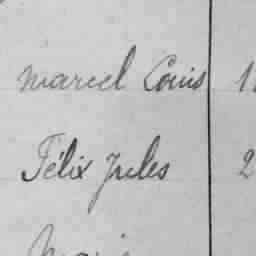 Marcel Louis 1
Félix Jules 2